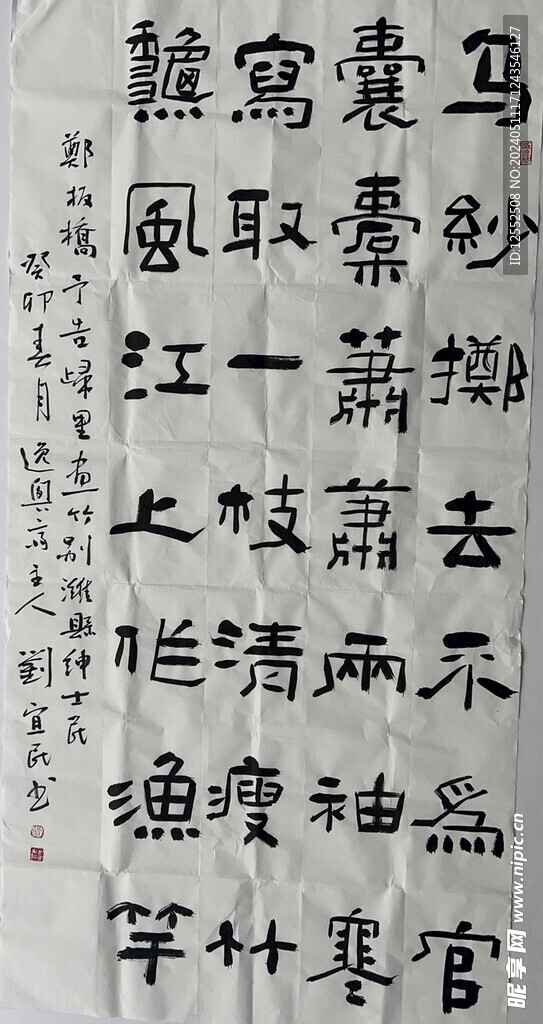 乌紗擲去不爲官
囊橐蕭蕭兩袖寒
寫取一枝清瘦竹
龝風江上作漁竿
鄭板橋予告歸里畫竹別濰縣紳士民
癸卯春月逸興齋主人劉宜民书
ID:12552508 NO:20240511171243546127
昵享网 www.nipic.cn